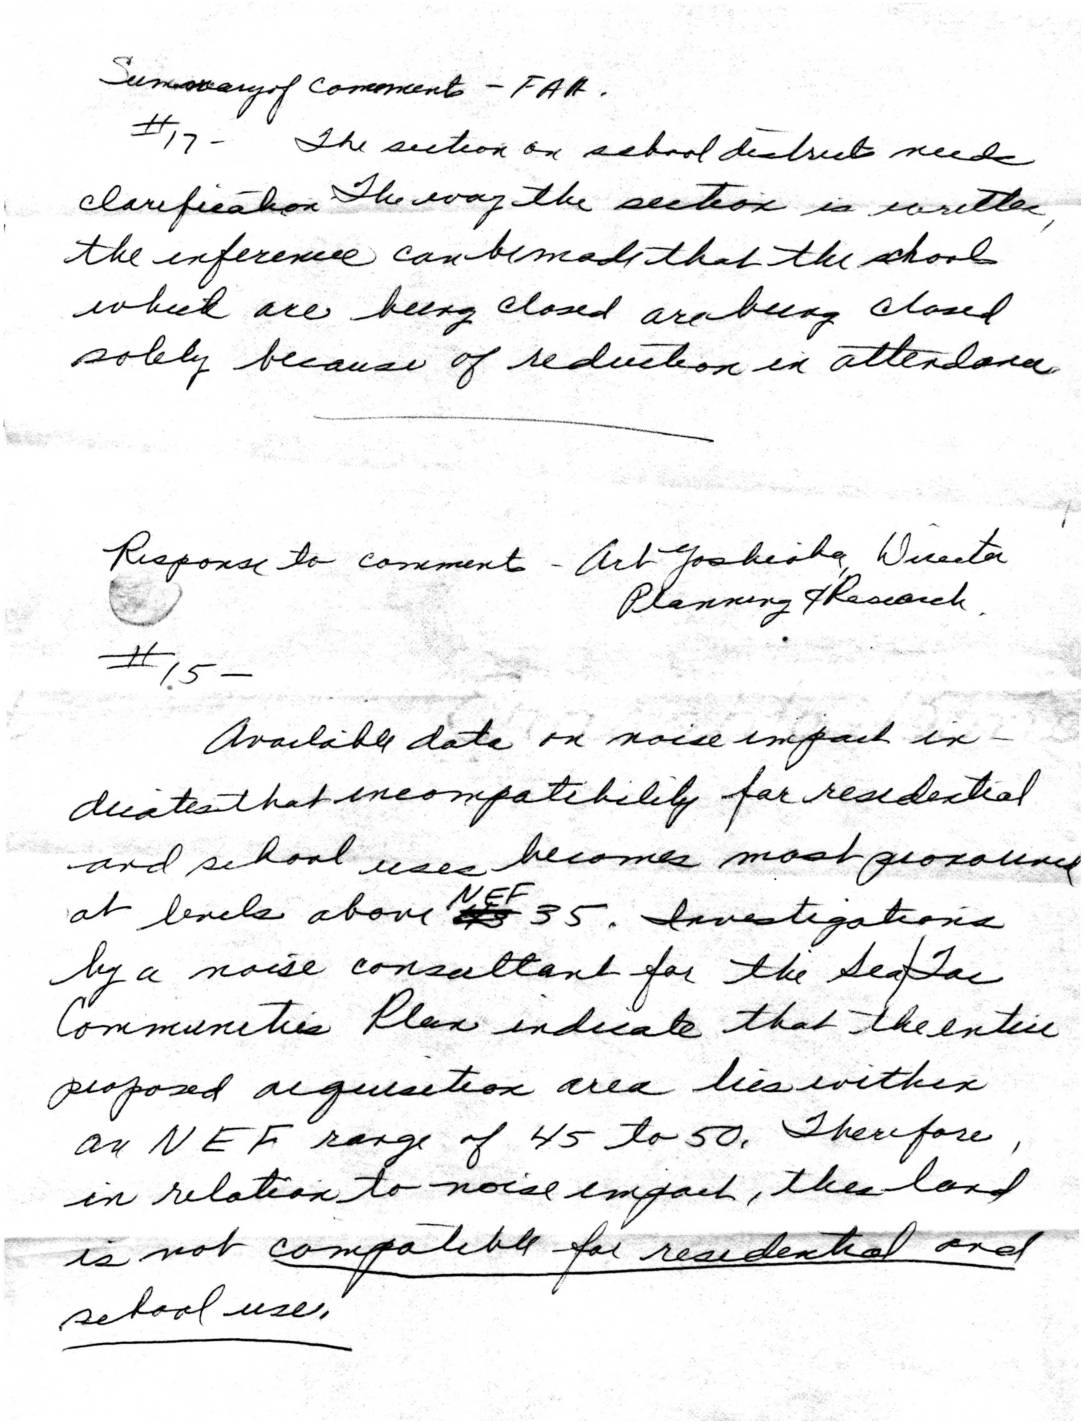 Summary of comments - FAA.
#17- The section on school districts needs
clarification The way the section is written,
the inference can be made that the schools
which are being closed are being closed
solely because of reduction in attendance.
Response to comments - Art Yoshioka, Director
Planning & Research.
#15-
Available data on noise impact in-
dicates that incompatibility for residential
and school uses becomes most pronounced
at levels above NEF 35. Investigations
by a noise consultant for the Sea/Tac
Communities Plan indicate that the entire
proposed acquisition area lies within
an NEF range of 45 to 50. Therefore,
in relation to noise impact, the land
is not compatible for residential and
school use.